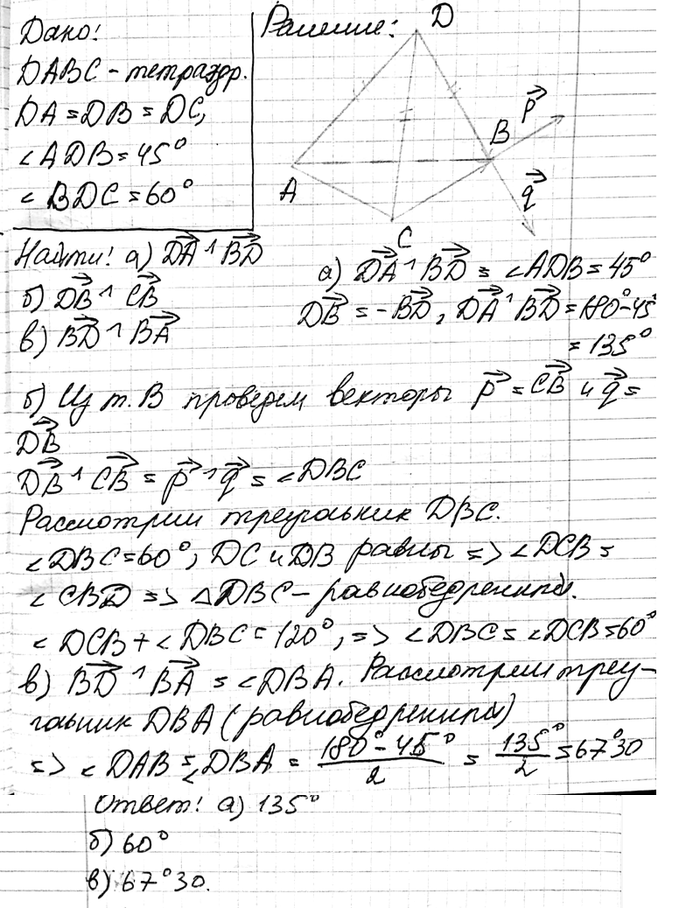 Дано:
Решение:
DABC - тетраэдр.
DA = DB = DC,
∠ADB = 45°
∠BDC = 60°
D
B
p⃗
A
q⃗
C
Найти: а) DA⃗ ^ BD⃗
б) DB⃗ ^ CB⃗
в) BD⃗ ^ BA⃗
а) DA⃗ ^ BD⃗ = ∠ADB = 45°
DB⃗ = -BD⃗, DA⃗ ^ BD⃗ = 180°-45°
= 135°
б) Из т. В проведем векторы p⃗ = CB⃗ и q⃗ =
DB⃗
DB⃗ ^ CB⃗ = p⃗ ^ q⃗ = ∠DBC
Рассмотрим треугольник DBC.
∠DBC = 60°, DC и DB равны => ∠DCB =
∠CBD => △DBC - равнобедренный.
∠DCB + ∠DBC = 120°, => ∠DBC = ∠DCB = 60°
в) BD⃗ ^ BA⃗ = ∠DBA. Рассмотрим треу-
гольник DBA (равнобедренный)
=> ∠DAB = ∠DBA = (180° - 45°)/2 = 135°/2 = 67°30
Ответ: а) 135°
б) 60°
в) 67°30.